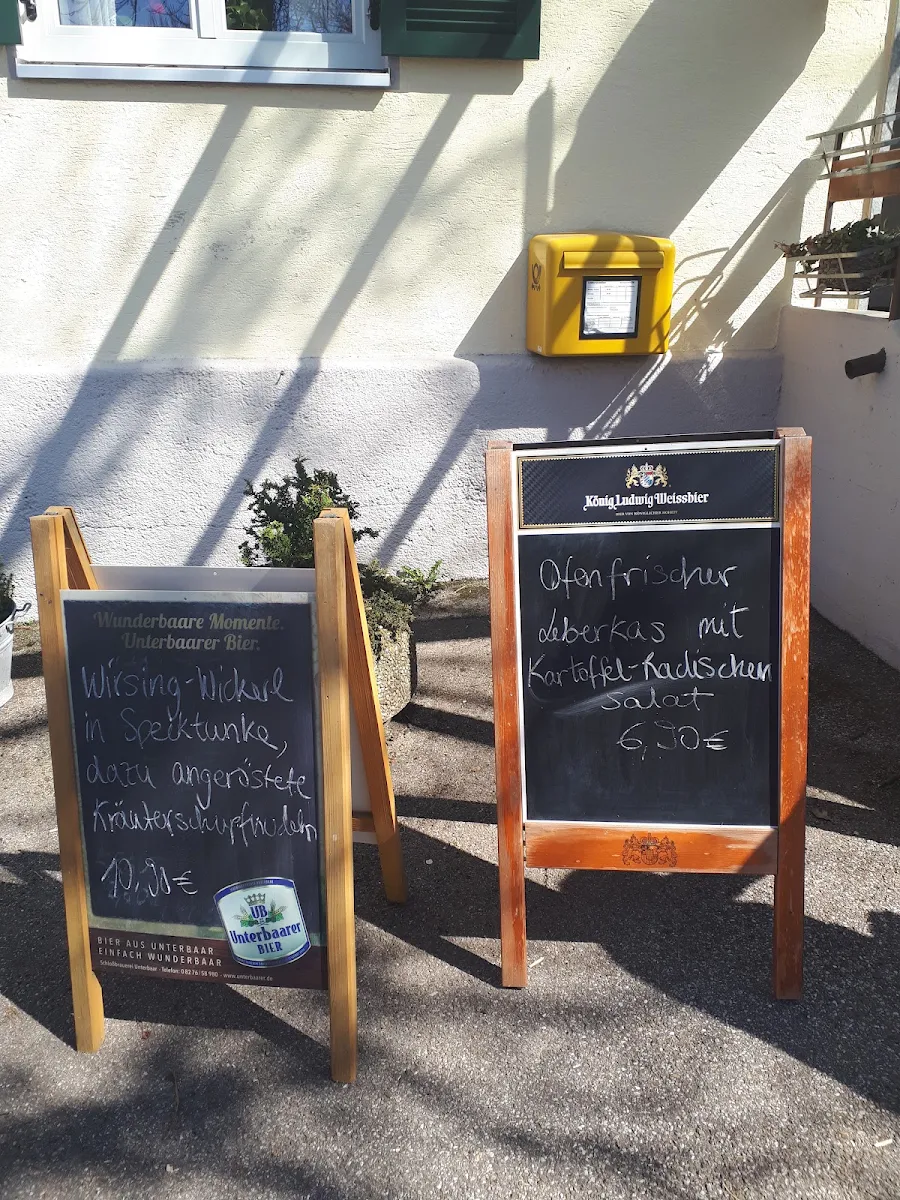 Wunderbaare Momente.
Unterbaarer Bier.
Wirsing-Wickerl
in Specktunke,
dazu angeröstete
Kräuterschupfnudeln
10,90€
UB
Unterbaarer
BIER
BIER AUS UNTERBAAR
EINFACH WUNDERBAAR
Schloßbrauerei Unterbaar - Telefon: 0 82 76 / 58 990 - www.unterbaarer.de
König Ludwig Weissbier
BIER VON KÖNIGLICHER HOHEIT
Ofenfrischer
Leberkas mit
Kartoffel-Radischen
Salat
6,90€